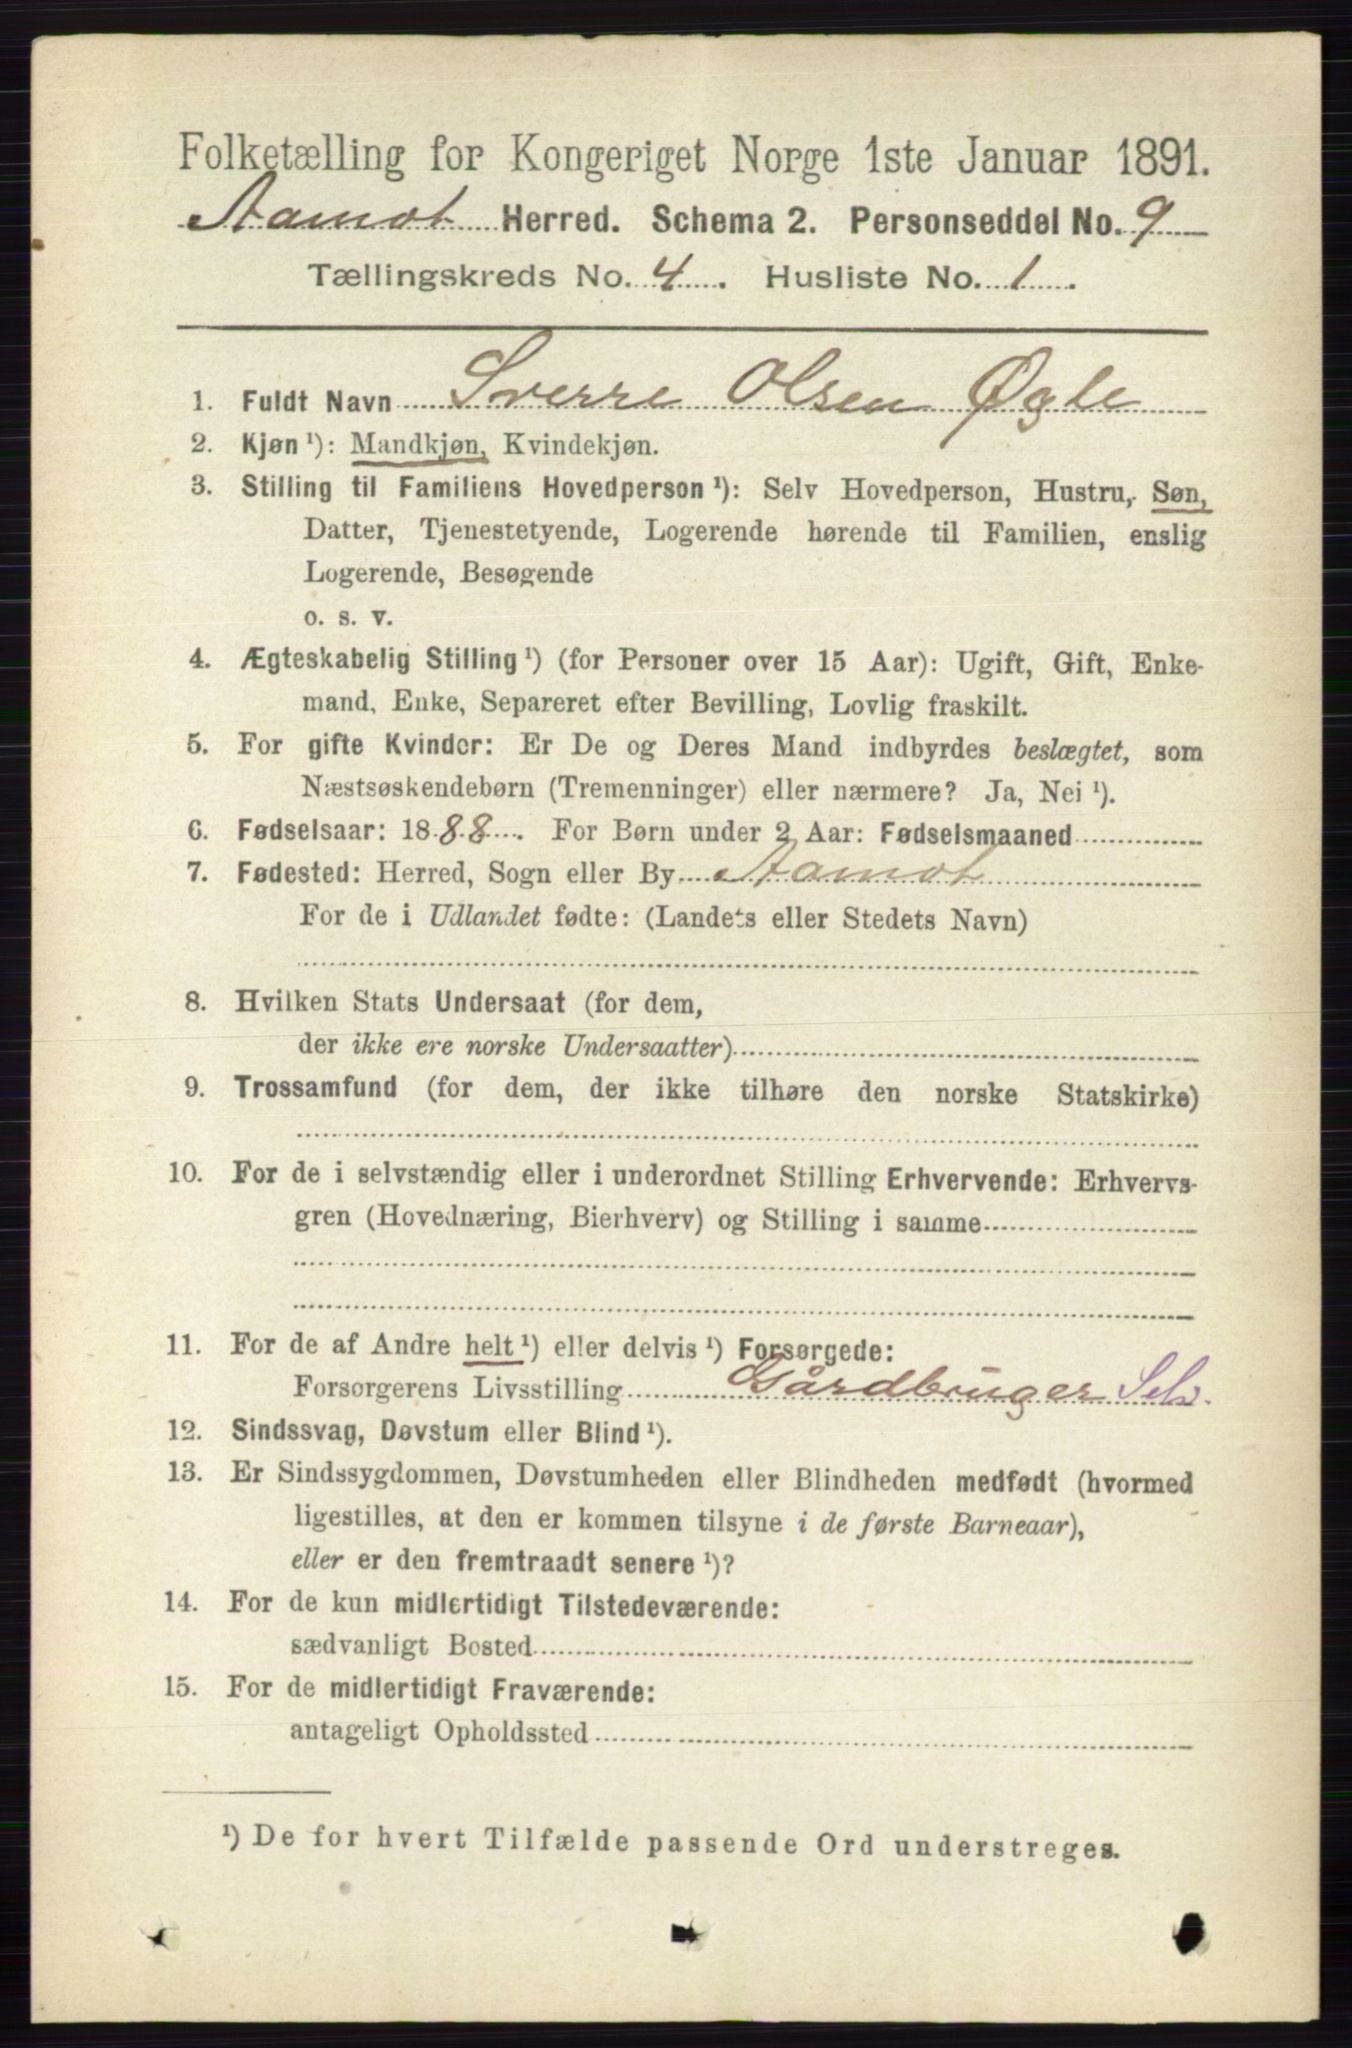 Folketælling for Kongeriget Norge 1ste Januar 1891.
Aamot Herred. Schema 2. Personseddel No. 9
Tællingskreds No. 4. Husliste No. 1.
1. Fuldt Navn Sverre Olsen Øgle
2. Kjøn ¹): Mandkjøn, Kvindekjøn.
3. Stilling til Familiens Hovedperson ¹): Selv Hovedperson, Hustru, Søn,
Datter, Tjenestetyende, Logerende hørende til Familien, enslig
Logerende, Besøgende
o. s. v.
4. Ægteskabelig Stilling ¹) (for Personer over 15 Aar): Ugift, Gift, Enke-
mand, Enke, Separeret efter Bevilling, Lovlig fraskilt.
5. For gifte Kvinder: Er De og Deres Mand indbyrdes beslægtet, som
Næstsøskendebørn (Tremenninger) eller nærmere? Ja, Nei ¹).
6. Fødselsaar: 1888. For Børn under 2 Aar: Fødselsmaaned
7. Fødested: Herred, Sogn eller By Aamot
For de i Udlandet fødte: (Landets eller Stedets Navn)
8. Hvilken Stats Undersaat (for dem,
der ikke ere norske Undersaatter)
9. Trossamfund (for dem, der ikke tilhøre den norske Statskirke)
10. For de i selvstændig eller i underordnet Stilling Erhvervende: Erhvervs-
gren (Hovednæring, Bierhverv) og Stilling i samme
11. For de af Andre helt ¹) eller delvis ¹) Forsørgede:
Forsørgerens Livsstilling Gårdbruger Selv.
12. Sindssvag, Døvstum eller Blind ¹).
13. Er Sindssygdommen, Døvstumheden eller Blindheden medfødt (hvormed
ligestilles, at den er kommen tilsyne i de første Barneaar),
eller er den fremtraadt senere ¹)?
14. For de kun midlertidigt Tilstedeværende:
sædvanligt Bosted
15. For de midlertidigt Fraværende:
antageligt Opholdssted
¹) De for hvert Tilfælde passende Ord understreges.